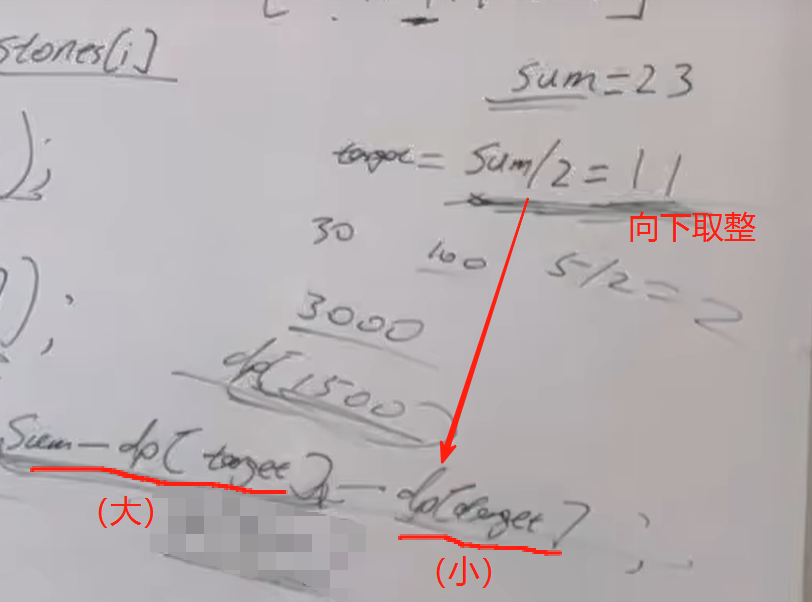 stones[i]
sum=23
);
target = sum/2 = 11
向下取整
30
100
5/2=2
);
3000
dp[1500]
sum-dp[target]-dp[target];
(大)
(小)